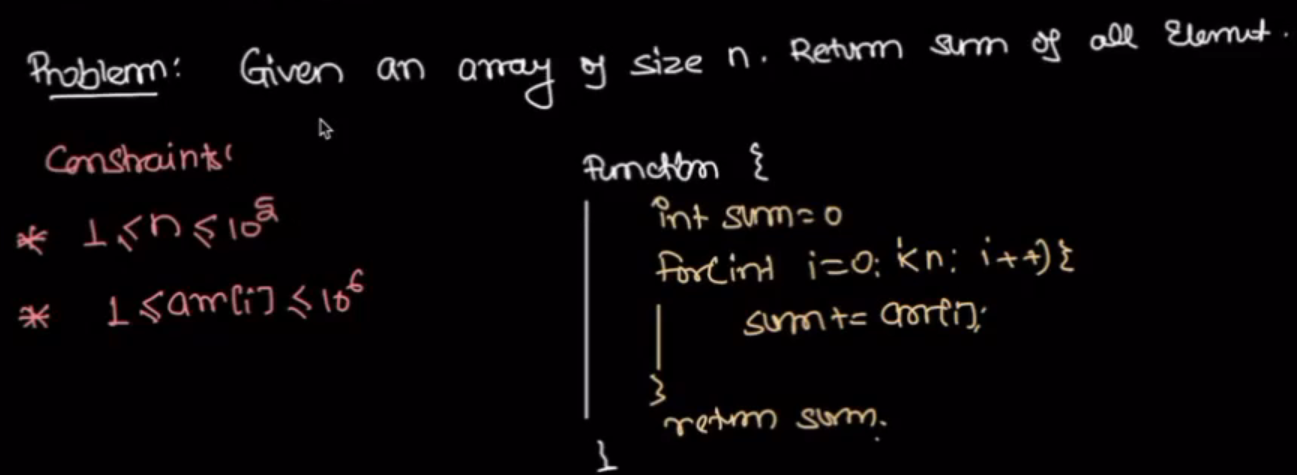 Problem: Given an array of size n. Return sum of all Element.
Constraints:
* 1 ≤ n ≤ 10^5
* 1 ≤ arr[i] ≤ 10^6
Function {
int sum = 0
for(int i=0; i<n; i++){
sum += arr[i];
}
return sum.
}